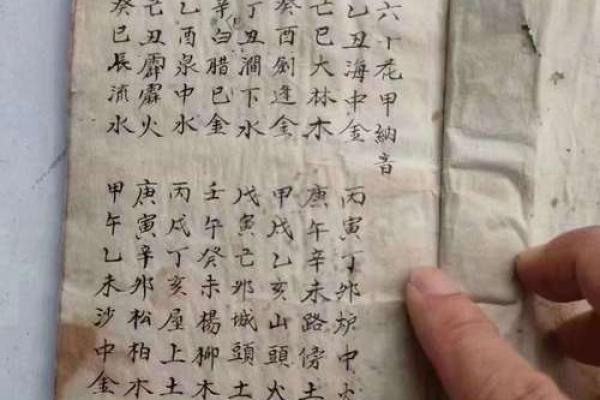 六十花甲納音
乙丑海中金
丙寅丁卯炉中火
己巳大林木
庚午辛未路傍土
癸酉劍逢金
甲戌乙亥山頭火
丁丑澗下水
戊寅己卯城頭土
辛白腊巳金
壬午癸未楊柳木
乙酉泉中水
丙戌丁亥屋上土
己丑霹靂火
庚寅辛卯松柏木
癸巳長流水
甲午乙未沙中金